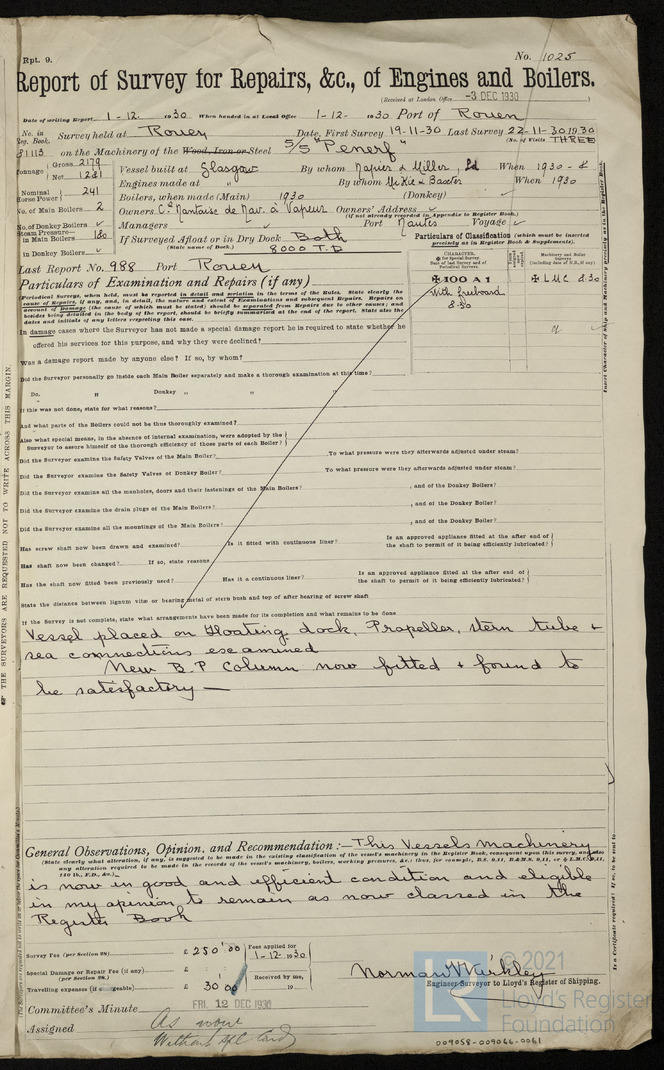 Rpt. 9.
No. 1025
Report of Survey for Repairs, &c., of Engines and Boilers.
(Received at London Office -3 DEC 1930 )
Date of writing Report 1-12- 1930 When handed in at Local Office 1-12- 1930 Port of Rouen
No. in Reg. Book. Survey held at Rouen Date, First Survey 19-11-30 Last Survey 22-11-30 1930
(No. of Visits THREE
81113 on the Machinery of the Wood, Iron or Steel S/S "Penerf"
Tonnage Gross 2179 Net 1281 Vessel built at Glasgow By whom Napier & Miller, Ld When 1930-8
Engines made at " By whom McKie & Baxter When 1930
Nominal Horse Power 241 Boilers, when made (Main) 1930 (Donkey)
No. of Main Boilers 2 Owners Cie Nantaise de Nav. à Vapeur Owners' Address
(if not already recorded in Appendix to Register Book.)
No. of Donkey Boilers Managers Port Nantes Voyage
Steam Pressure in Main Boilers 180 If Surveyed Afloat or in Dry Dock Both
(State name of Dock.) 8000 T.D
in Donkey Boilers
Last Report No. 988 Port Rouen
Particulars of Classification (which must be inserted precisely as in Register Book & Supplements).
CHARACTER.
Machinery and Boiler Surveys
✠100 A1
with freeboard
8.30
✠ LMC 8.30
Particulars of Examination and Repairs (if any)
(Periodical Surveys, when held, must be reported in detail and seriatim in the terms of the Rules. State clearly the
cause of Repairs, if any, and, in detail, the nature and extent of Examinations and subsequent Repairs. Repairs on
account of Damage (the cause of which must be stated) should be separated from Repairs due to other causes; and
besides being detailed in the body of the report, should be briefly summarised at the end of the report. State also the
dates and initials of any letters respecting this case.
In damage cases where the Surveyor has not made a special damage report he is required to state whether he
offered his services for this purpose, and why they were declined?
Was a damage report made by anyone else? If so, by whom?
Did the Surveyor personally go inside each Main Boiler separately and make a thorough examination at this time?
Do. " Donkey " " "
If this was not done, state for what reasons?
And what parts of the Boilers could not be thus thoroughly examined?
Also what special means, in the absence of internal examination, were adopted by the
Surveyor to assure himself of the thorough efficiency of those parts of each Boiler?
Did the Surveyor examine the Safety Valves of the Main Boiler? To what pressure were they afterwards adjusted under steam?
Did the Surveyor examine the Safety Valves of Donkey Boiler? To what pressure were they afterwards adjusted under steam?
Did the Surveyor examine all the manholes, doors and their fastenings of the Main Boilers? , and of the Donkey Boilers?
Did the Surveyor examine the drain plugs of the Main Boilers? , and of the Donkey Boiler?
Did the Surveyor examine all the mountings of the Main Boilers? , and of the Donkey Boiler?
Has screw shaft now been drawn and examined? Is it fitted with continuous liner? Is an approved appliance fitted at the after end of the shaft to permit of it being efficiently lubricated?
Has shaft now been changed? If so, state reasons
Has the shaft now fitted been previously used? Has it a continuous liner? Is an approved appliance fitted at the after end of the shaft to permit of it being efficiently lubricated?
State the distance between lignum vitæ or bearing metal of stern bush and top of after bearing of screw shaft
If the Survey is not complete, state what arrangements have been made for its completion and what remains to be done
Vessel placed on Floating dock, Propeller, stern tube +
sea connections examined
New B P Column now fitted + found to
be satisfactory —
General Observations, Opinion, and Recommendation :— This Vessels machinery
(State clearly what alteration, if any, is suggested to be made in the existing classification of the vessel's machinery in the Register Book, consequent upon this survey, and also
any alteration required to be made in the records of the vessel's machinery, boilers, working pressures, &c.; thus, for example, B.S. 9,11, B.&M.S. 9,11, or ✠ L.M.C. 9,11,
140 lb., F.D., &c.)
is now in good and efficient condition and eligible
in my opinion to remain as now classed in the
Register Book
Survey Fee (per Section 28) £ 250.00 Fees applied for 1-12-1930
Special Damage or Repair Fee (if any) (per Section 28.) £
Travelling expenses (if chargeable) £ 30.00 Received by me, 19
Engineer Surveyor to Lloyd's Register of Shipping.
Committee's Minute FRI. 12 DEC 1930
Assigned As now
Without spl Card
© 2021
Lloyd's Register
Foundation
LR
009058-009066-0061
THE SURVEYORS ARE REQUESTED NOT TO WRITE ACROSS THIS MARGIN.
Insert Character of Ship and Machinery precisely as in the Register Book.